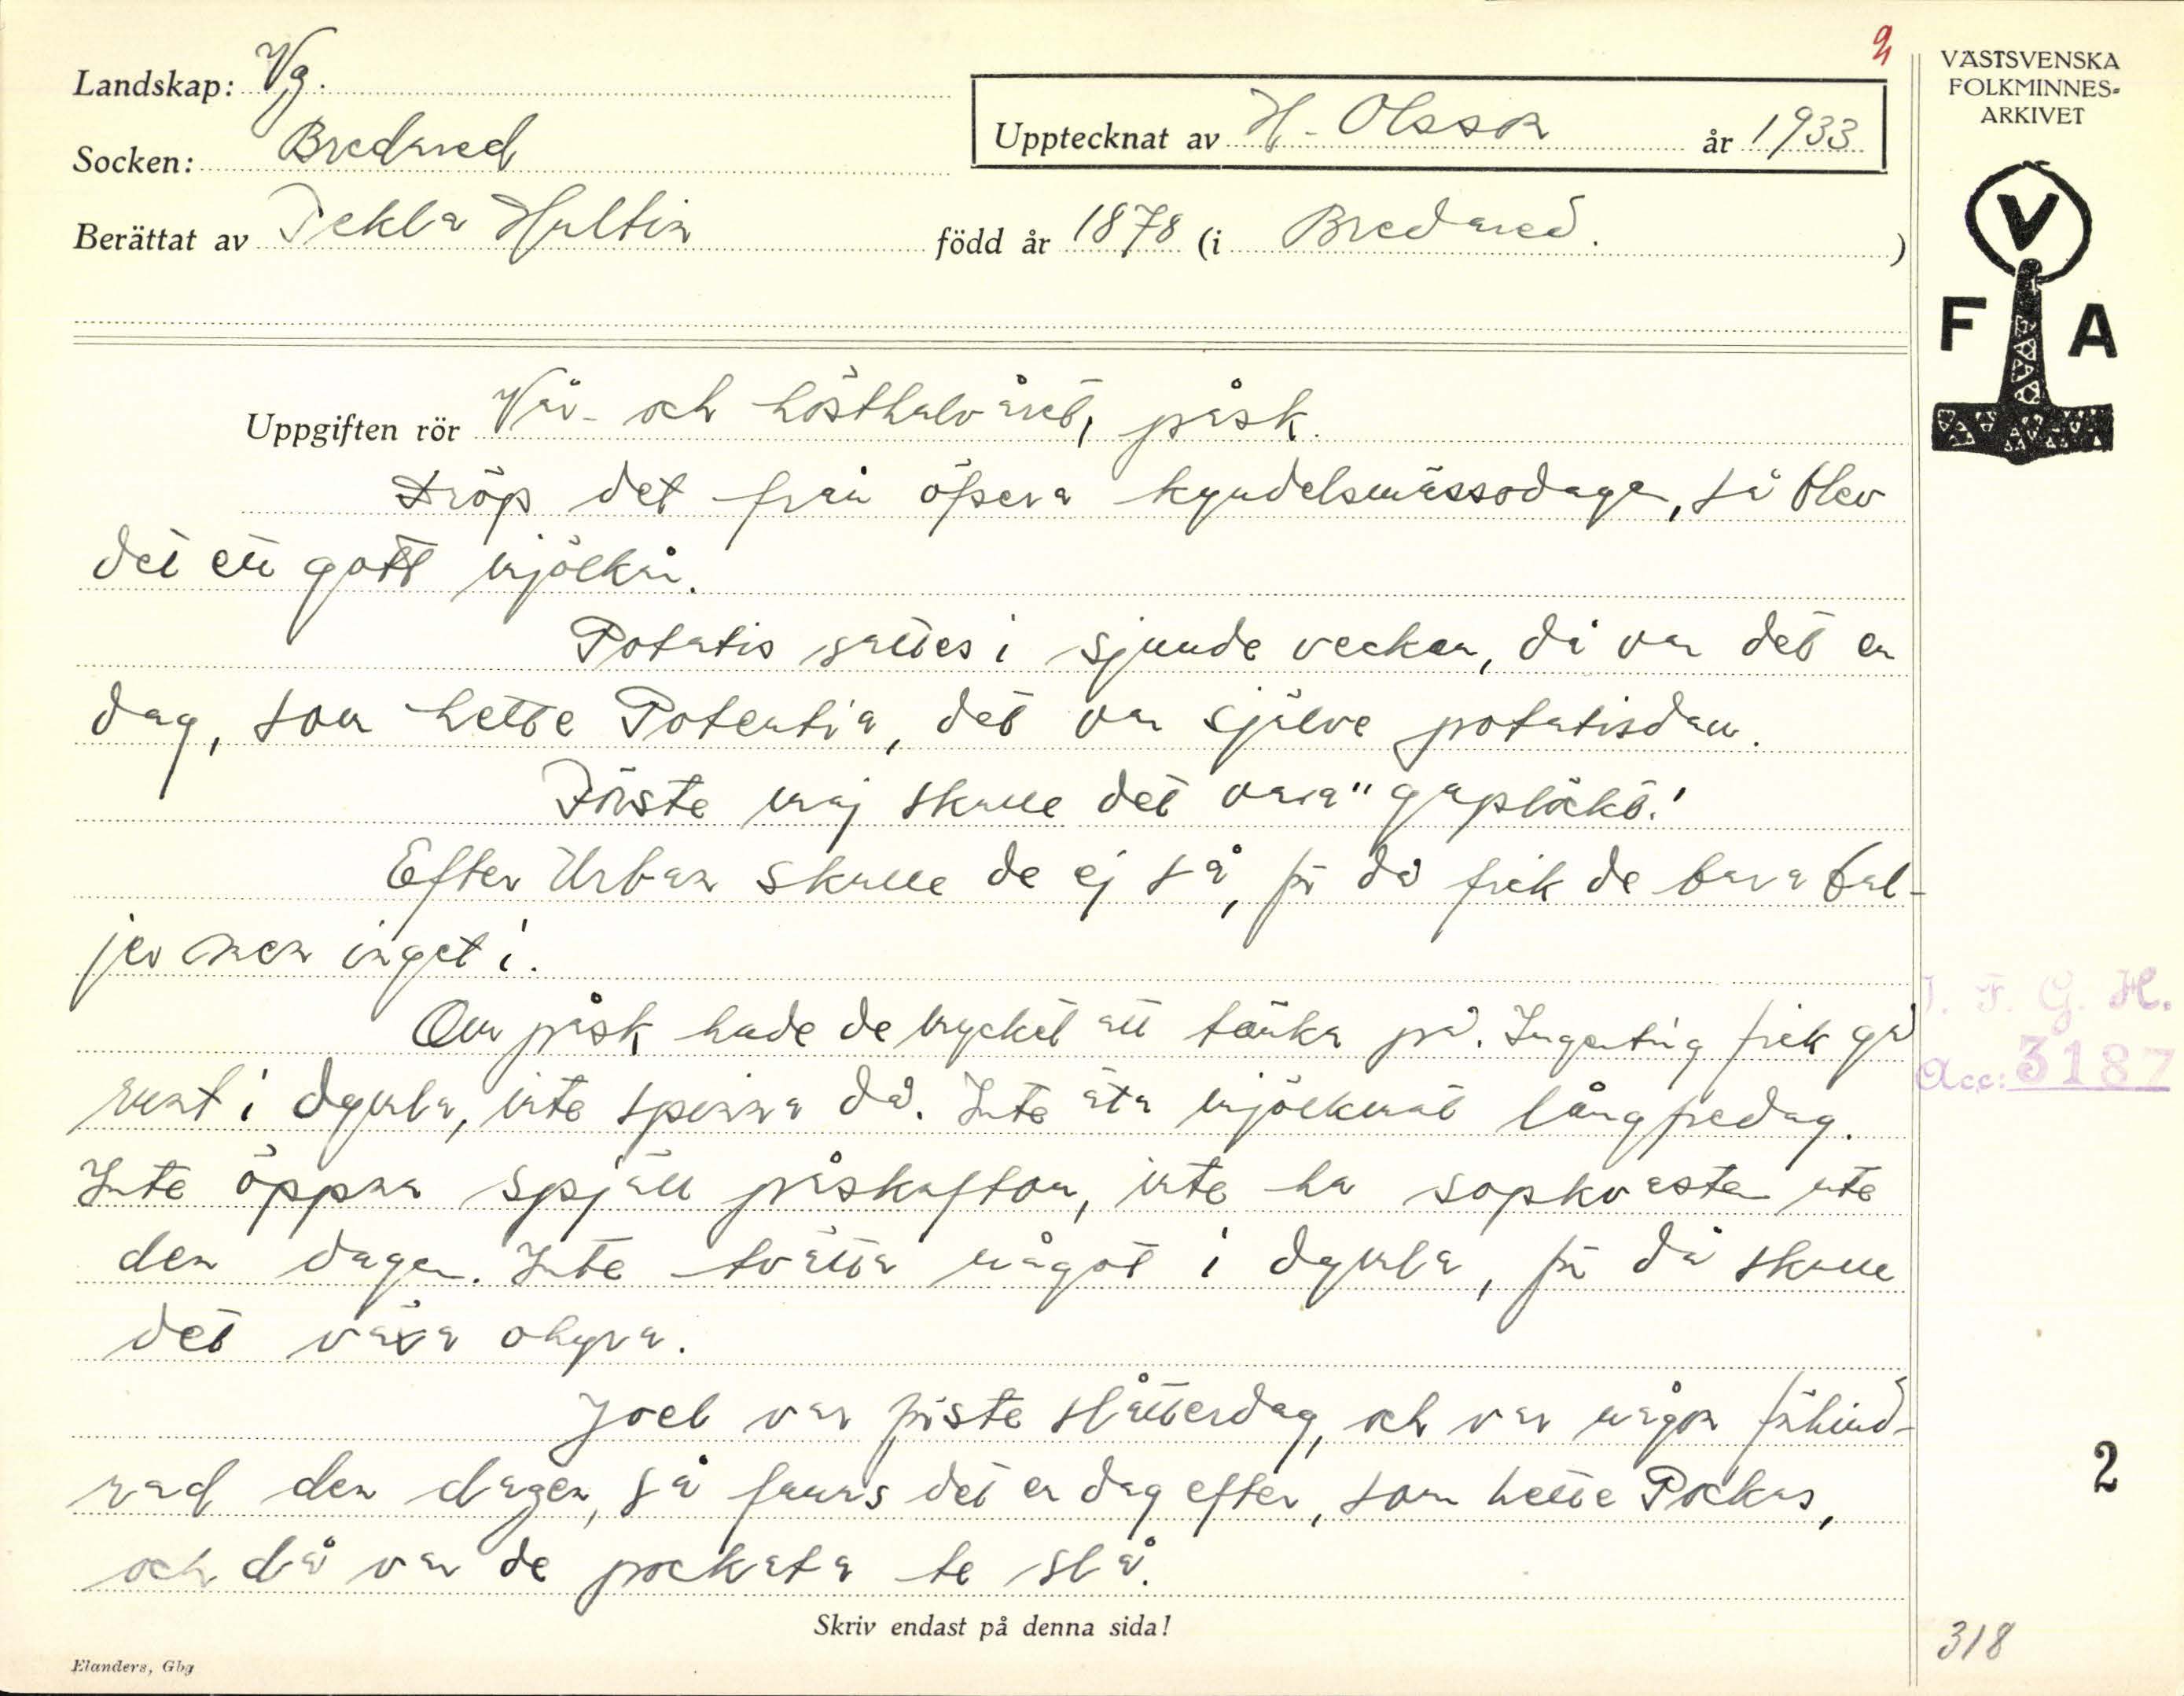 2
Landskap: Vg.
Socken: Bredared
Upptecknat av H. Olsson år 1933
Berättat av Tekla Hultin född år 1878 (i Bredared.)
VÄSTSVENSKA
FOLKMINNES-
ARKIVET
V
F A
Uppgiften rör Vår- och hösthalvåret, påsk.
Dröp det från öfsera kyndelsmässodagen, så blev
det ett gott mjölkår.
Potatis sattes i sjunde veckan, då var det en
dag, som hette Potentia, det var själve potatisdan.
Förste maj skulle det vara "gaptäkt."
Efter Urban skulle de ej så, för då fick de bara bal-
jer men inget i.
Om påsk hade de mycket att tänka på. Ingenting fick gå
runt i dymla, inte spinna då. Inte äta mjölkmat långfredag.
Inte öppna spjäll påskafton, inte ha sopkvasten ute
den dagen. Inte tvätta något i dymla, för då skulle
det växa ohyra.
Joel var förste slåtterdag, och var någon förhind-
rad den dagen, så fanns det en dag efter, som hette Pockas,
och då var de pockata te slå.
I. F. G. H.
Acc: 3187
2
318
Skriv endast på denna sida!
Elanders, Gbg